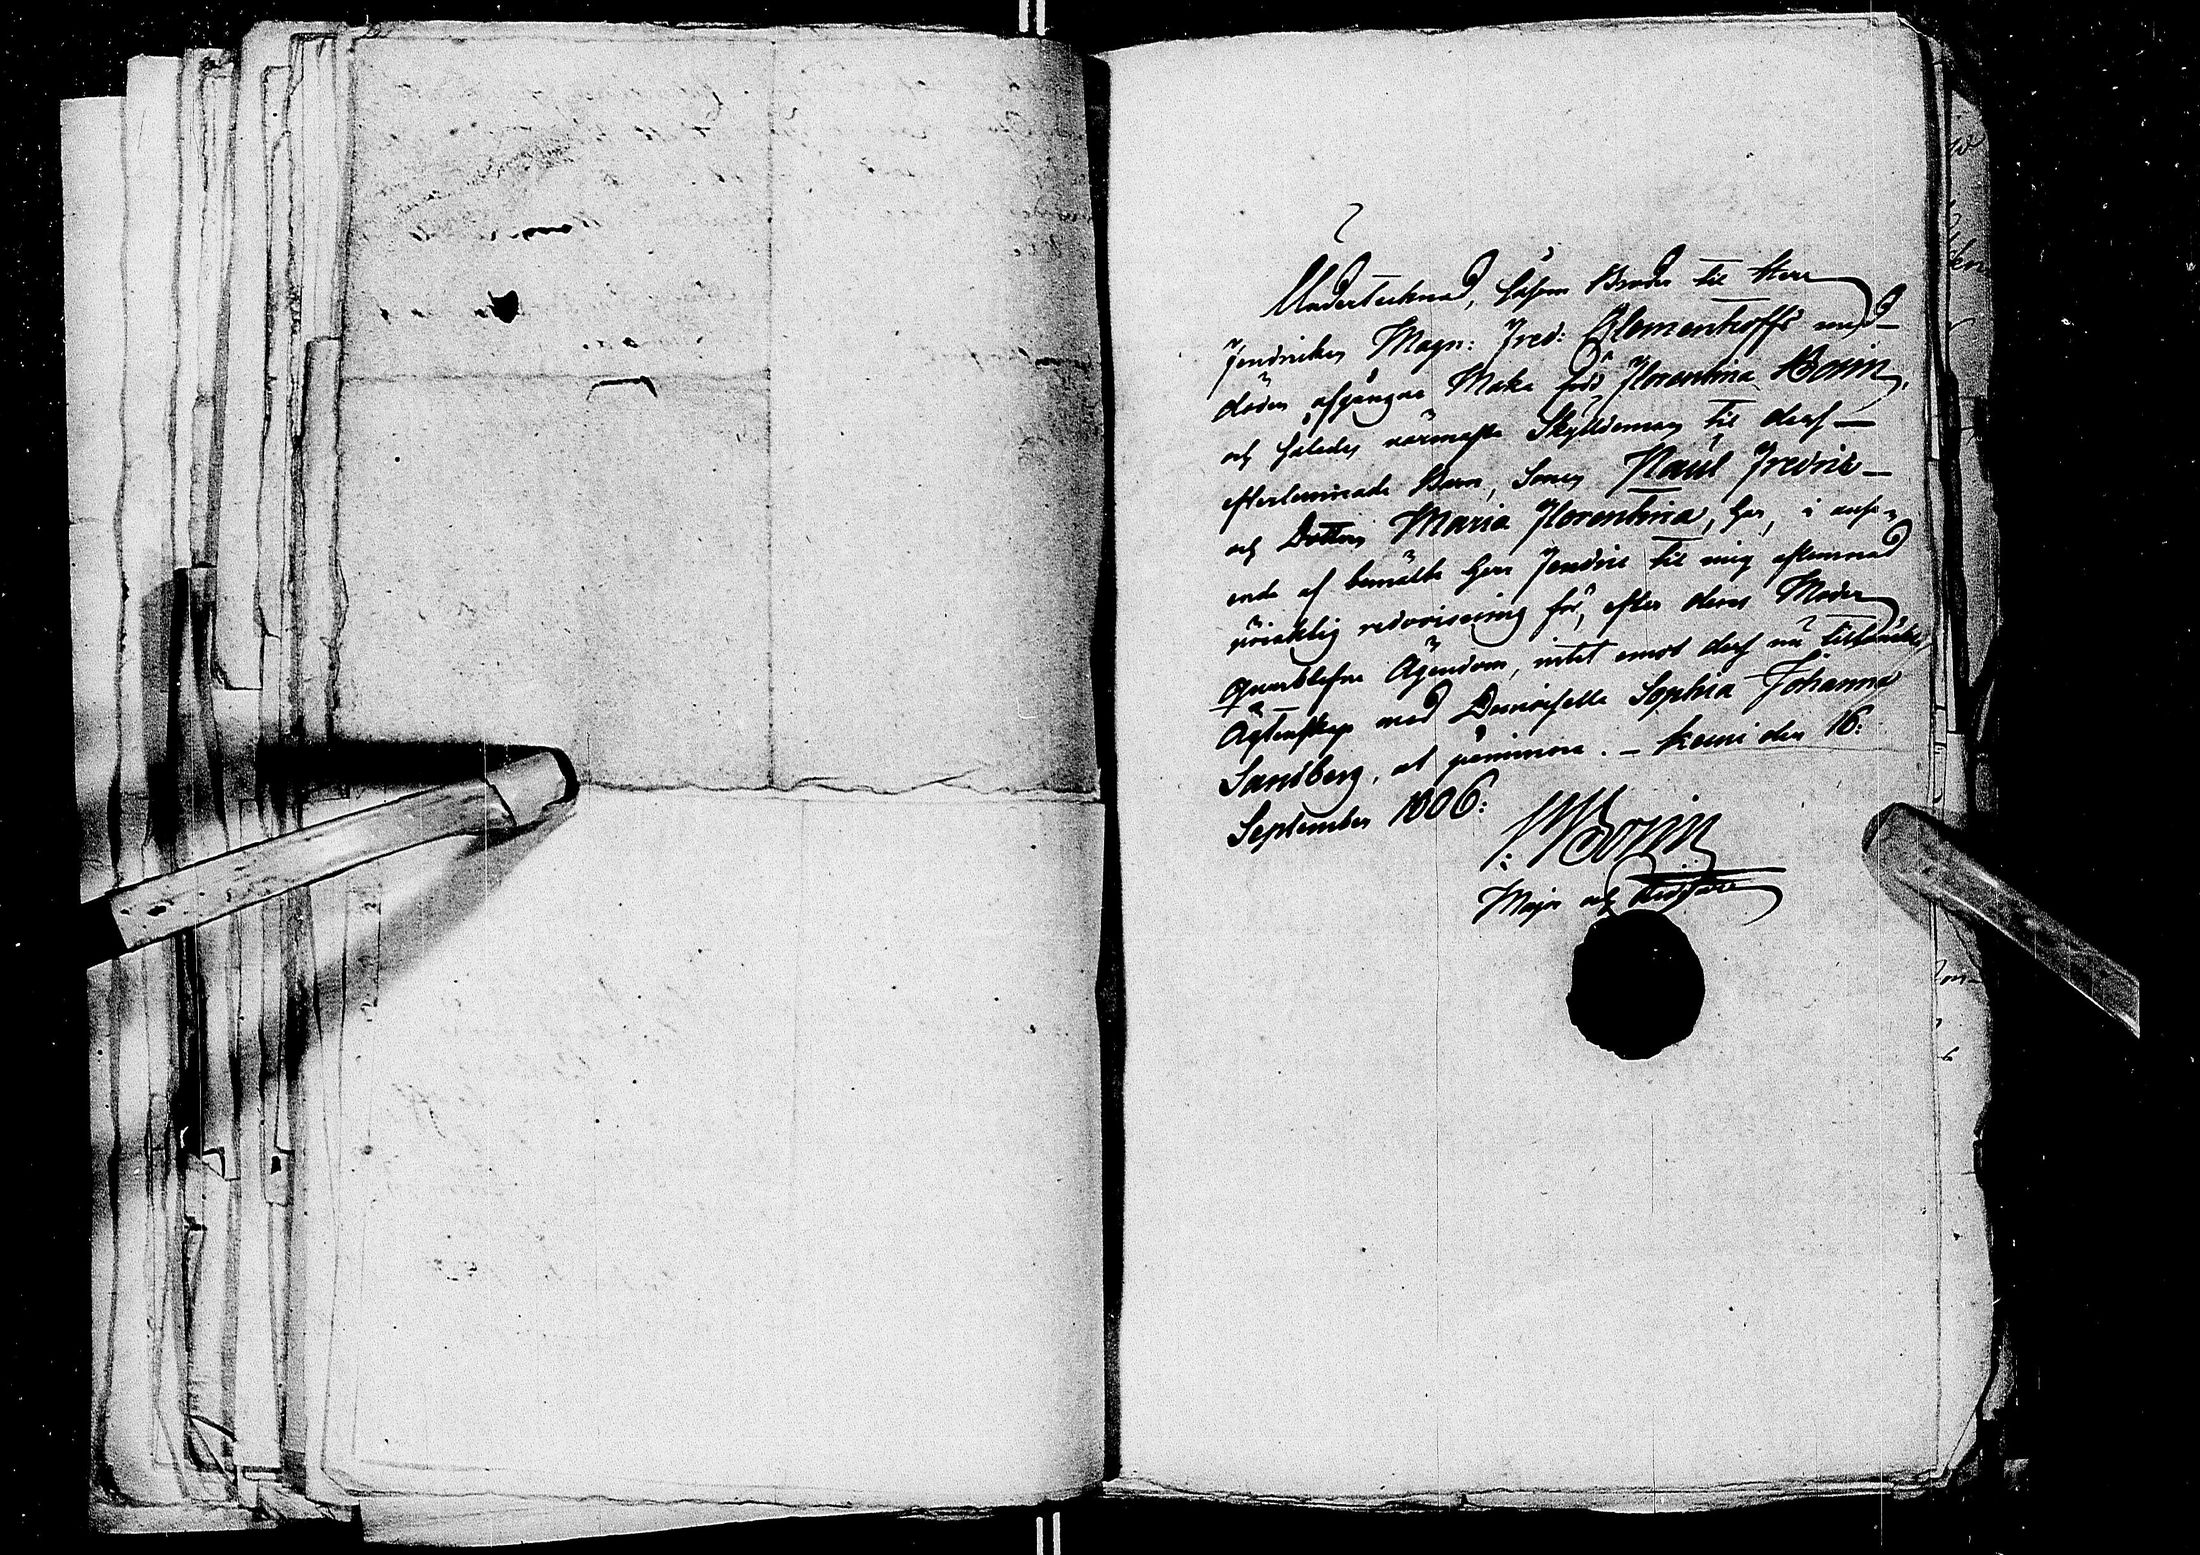 Undertecknad, såsom Broder til Herr
Fendricken Magn: Fred: Clementhoffs med
döden afgångne Maka född Florentina Bonin,
och således närmaste Skyldeman til dess
efterlemnade Barn, Sonen Paul Fredric
och Dottren Maria Florentina, har, i anse-
ende af bemälte Herr Fendric til mig aflemnad
ricktig redovisning för, efter deras Moder
quarblefne Ägendom, intet emot dess nu tilltänkte
Ägtenskap med Demoiselle Sophia Johanna
Sandberg, at påminna. – Kemi den 16:
September 1806:
Bonin
Major och Riddare